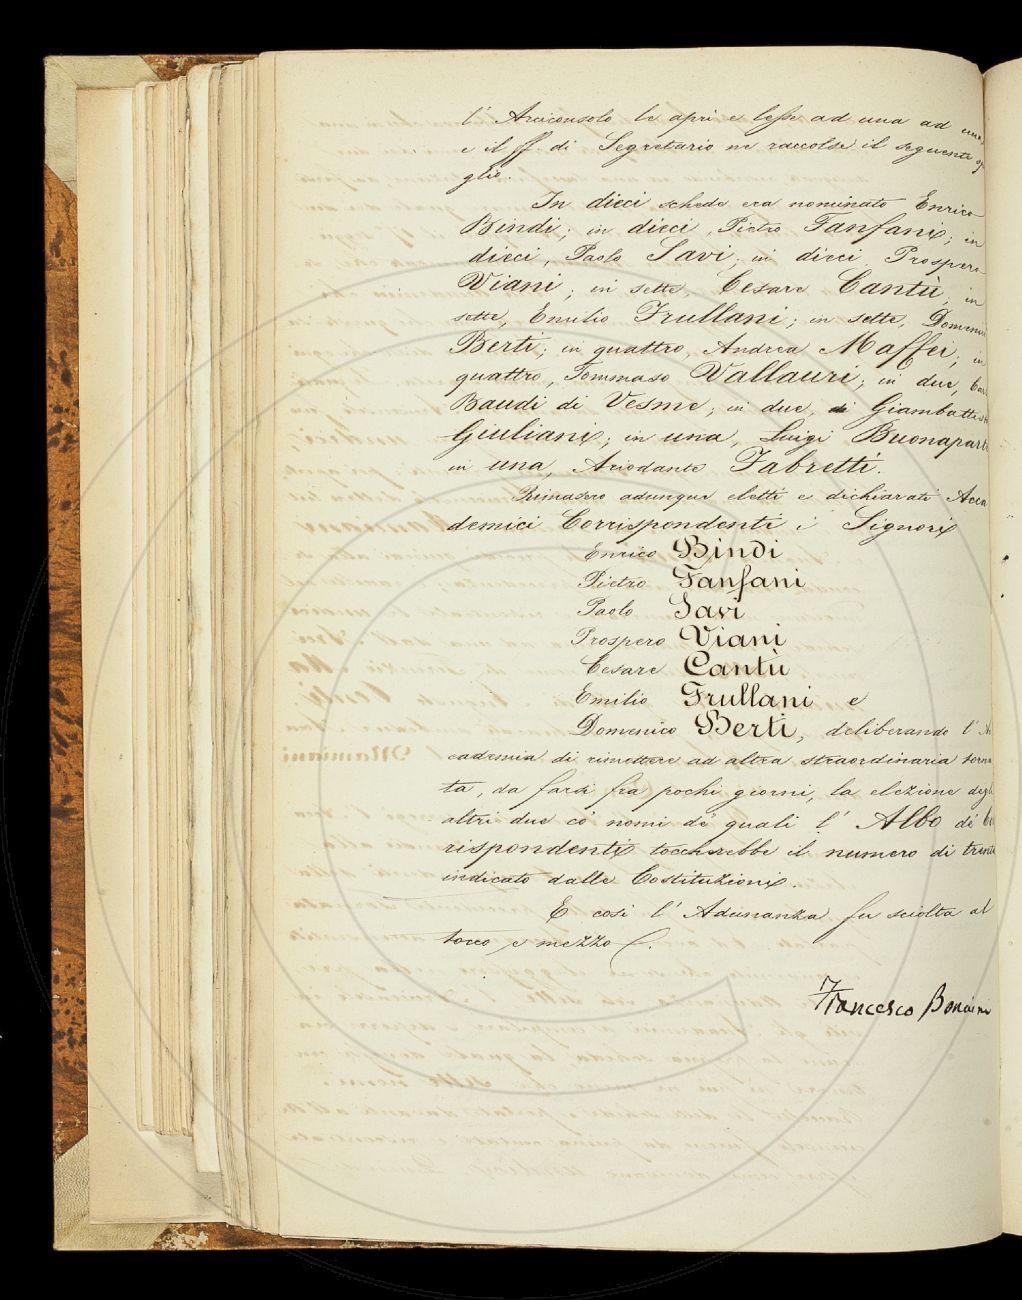 l' Arciconsolo le aprì e lesse ad una ad una,
e il ff di Segretario ne raccolse il seguente
glio.
In dieci schede era nominato Enrico
Bindi; in dieci, Pietro Fanfani; in
dieci, Paolo Savi; in dieci, Prospero
Viani; in sette, Cesare Cantù; in
sette, Emilio Frullani; in sette, Domenico
Berti; in quattro, Andrea Maffei; in
quattro, Tommaso Vallauri; in due,
Baudi di Vesme; in due, di Giambattista
Giuliani; in una, Luigi Buonaparte
in una, Ariodante Fabretti.
Rimasero adunque eletti e dichiarati Acca
demici Corrispondenti i Signori
Enrico Bindi
Pietro Fanfani
Paolo Savi
Prospero Viani
Cesare Cantù
Emilio Frullani e
Domenico Berti, deliberando l' Ac
cademia di rimettere ad altra straordinaria torna
ta, da farsi fra pochi giorni, la elezione degli
altri due co' nomi de' quali l' Albo de' Co
rispondenti toccherebbe il numero di trenta
indicato dalle Costituzioni.
E così l' Adunanza fu sciolta al
tocco e mezzo.
Francesco Bonaini